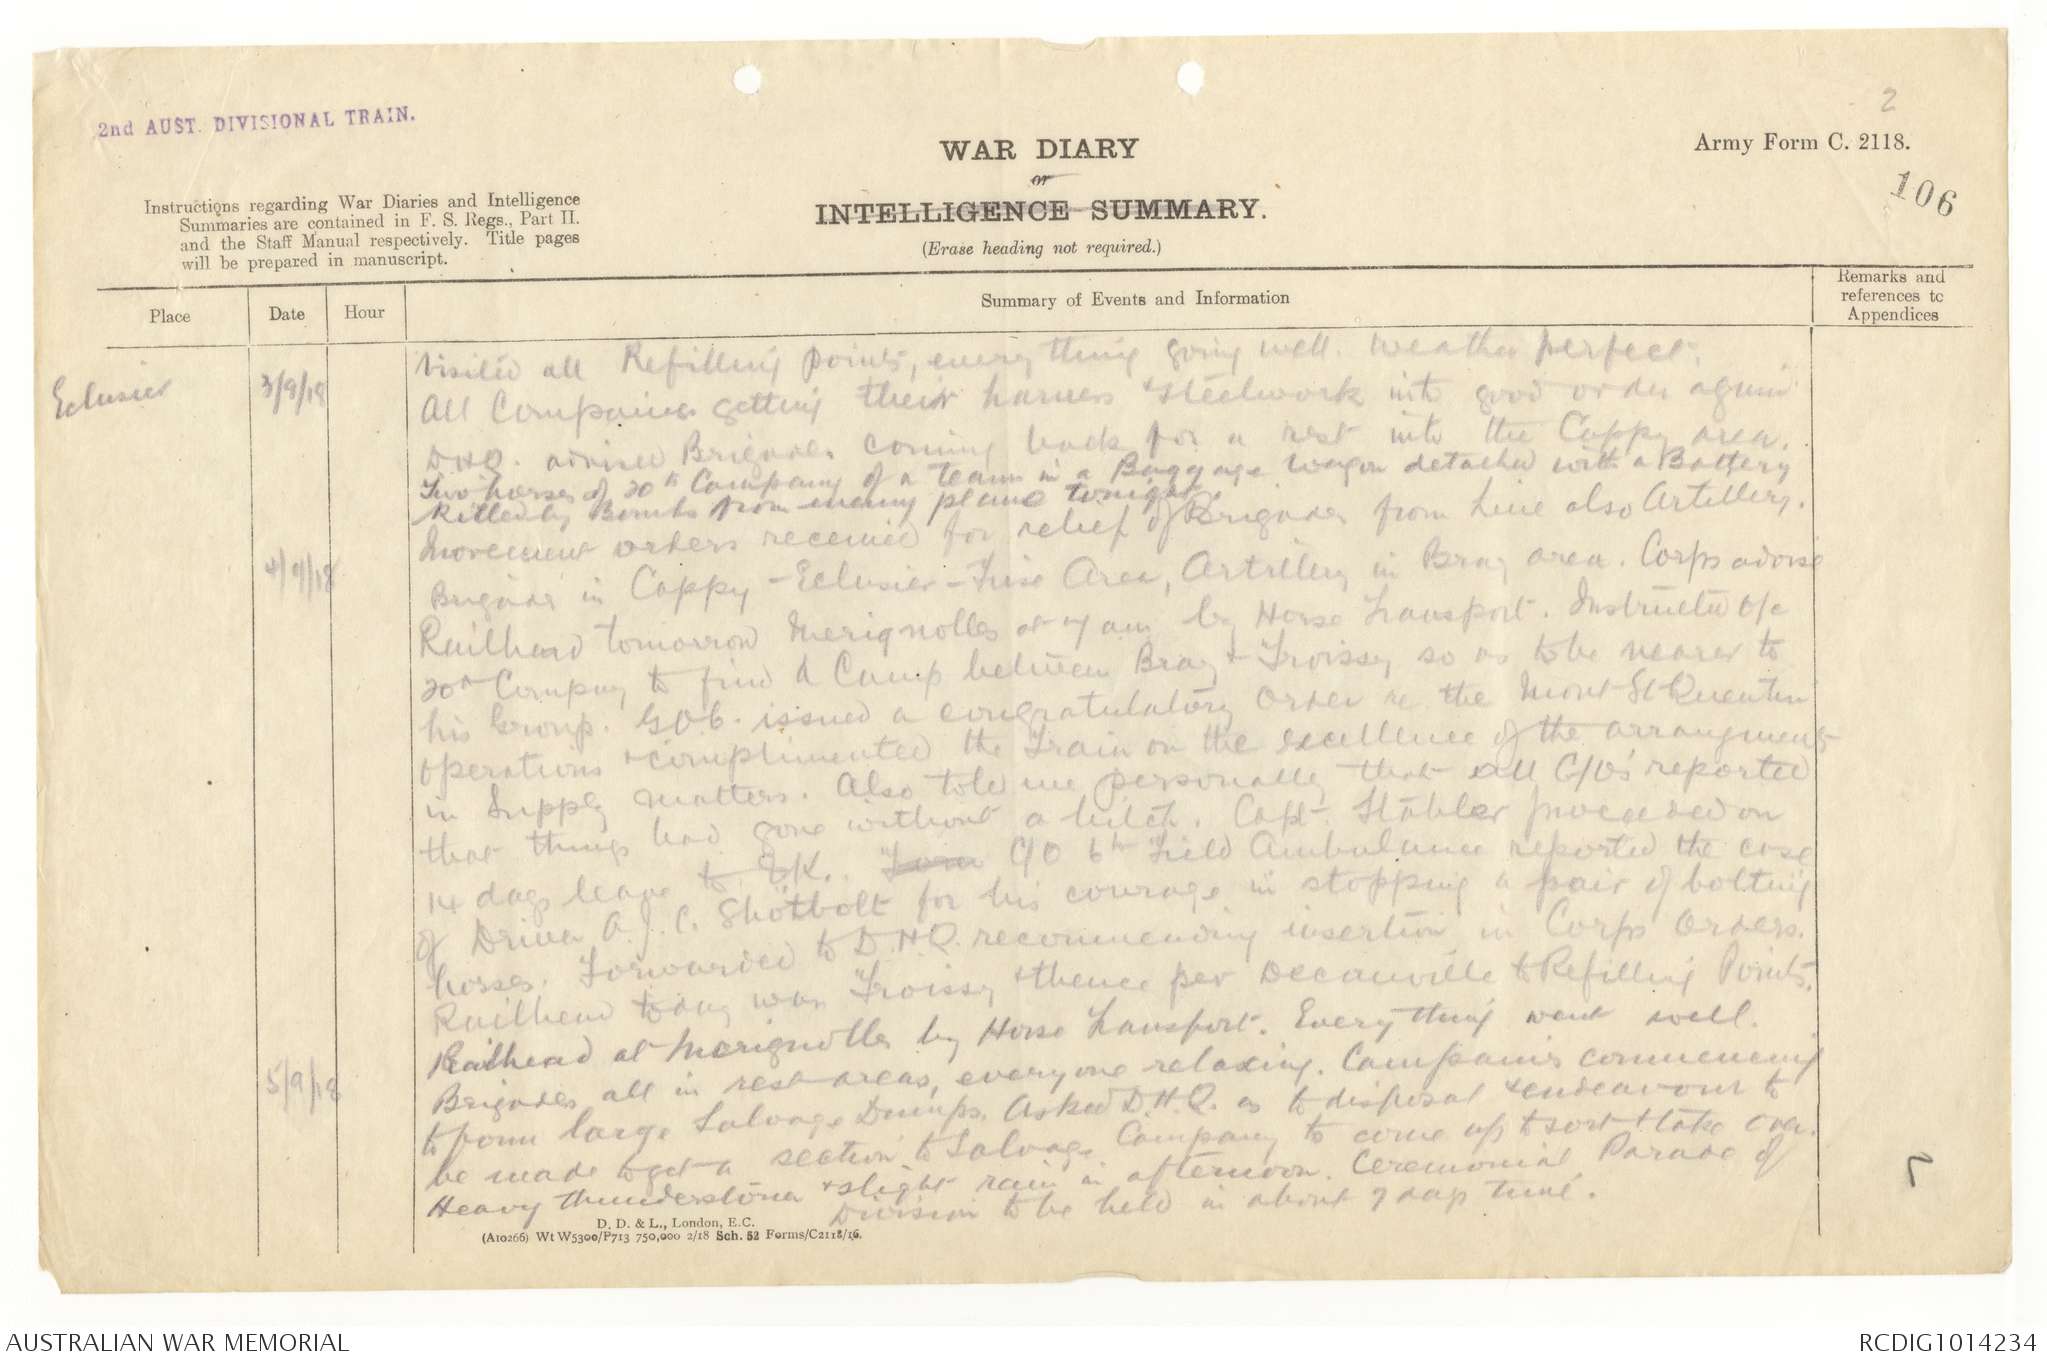 2nd AUST. DIVISIONAL TRAIN.
2
WAR DIARY
or
INTELLIGENCE SUMMARY.
(Erase heading not required.)
Army Form C. 2118.
106
Instructions regarding War Diaries and Intelligence
Summaries are contained in F. S. Regs., Part II.
and the Staff Manual respectively. Title pages
will be prepared in manuscript.
Place
Date
Hour
Summary of Events and Information
Remarks and
references to
Appendices
Eclusier
3/9/18
Visited all Refilling points, everything going well. Weather perfect.
All Companies getting their harness & steelwork into good order again
D.H.Q. advised Brigades coming back for a rest into the Cappy area.
Two horses of 20th Company of a team in a Baggage Wagon detached with a Battery
killed by Bombs from enemy plane tonight.
4/9/18
Movement orders received for relief of Brigades from Line also Artillery.
Brigades in Cappy - Eclusier - Frise Area, Artillery in Bray area. Corps advise
Railhead tomorrow Merignolles at 7 am by Horse Transport. Instructed O/c
20th Company to find a Camp between Bray & Froissy so as to be nearer to
his Group. G.O.C. issued a congratulatory order re the Mont St Quentin
operations & complimented the Train on the excellence of the arrangements
in Supply matters. Also told me personally that all C/O's reported
that things had gone without a hitch. Capt. Stabler proceeded on
14 days leave to U.K. C/O 6th Field Ambulance reported the case
of Driver A.J.C. Shotbolt for his courage in stopping a pair of bolting
horses. Forwarded to D.H.Q. recommending insertion in Corps Orders.
Railhead today was Froissy & thence per Decauville to Refilling Points.
5/9/18
Railhead at Merignolles by Horse Transport. Everything went well.
Brigades all in rest areas, everyone relaxing. Companies commencing
to form large Salvage Dumps. Asked D.H.Q. as to disposal & endeavour to
be made to get a section to Salvage Company to come up to sort & take over.
Heavy thunderstorm & slight rain in afternoon. Ceremonial Parade of
Division to be held in about 7 days time.
D. D. & L., London, E.C.
(A10266) Wt W5300/P713 750,000 2/18 Sch. 52 Forms/C2118/16.
AUSTRALIAN WAR MEMORIAL
RCDIG1014234